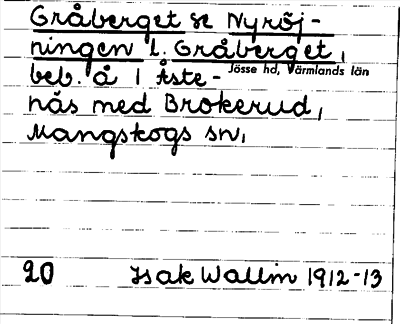 Gråberget se Nyröj-
ningen l. Gråberget,
Jösse hd, Värmlands län
beb. å 1 Åste-
näs med Brokerud,
Mangskogs sn,
20 Isak Wallin 1912-13